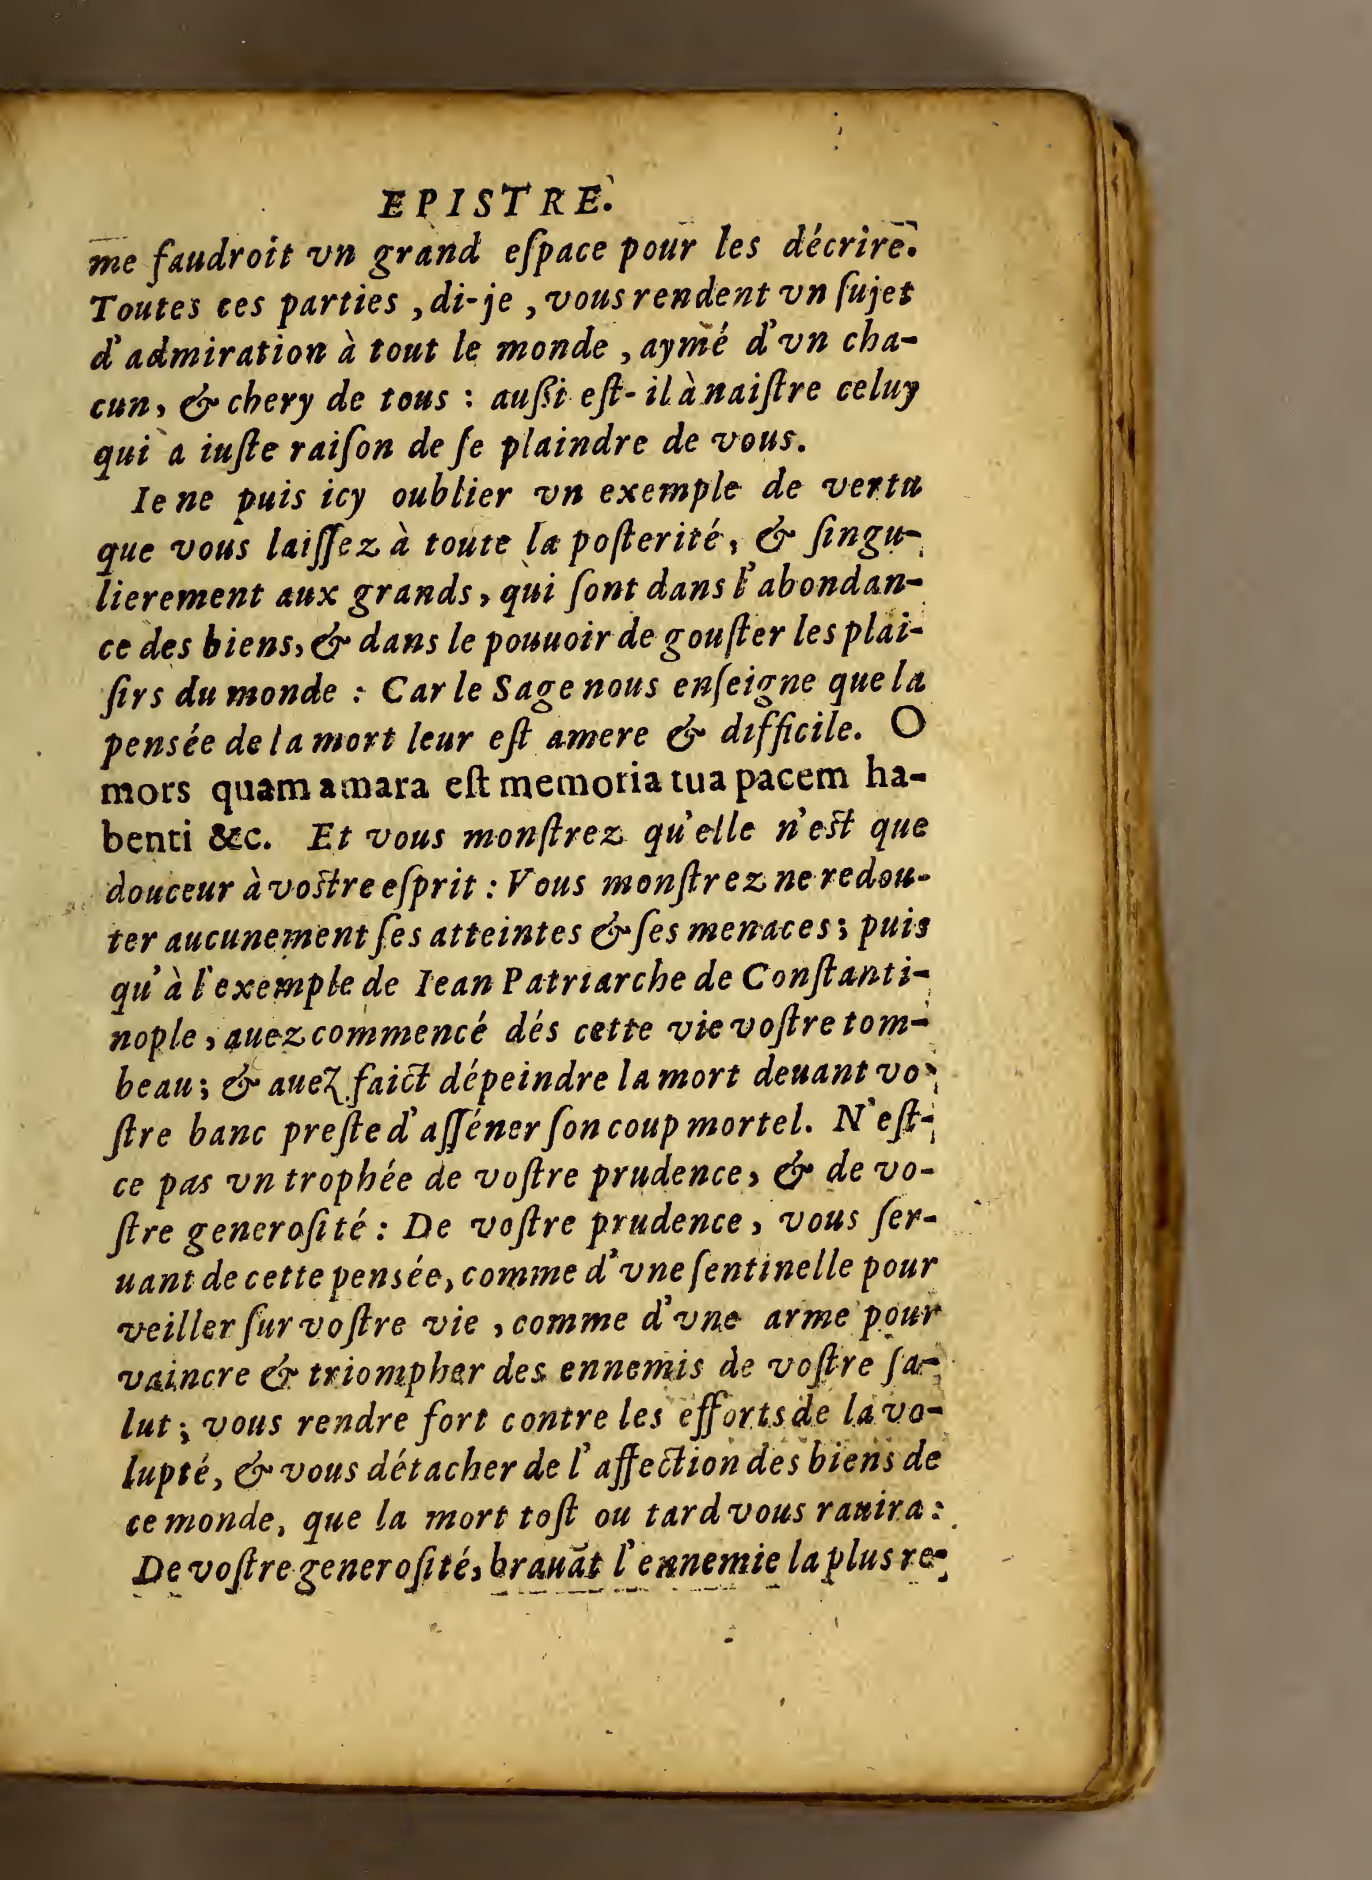 EPISTRE.
me faudroit vn grand eſpace pour les décrire.
Toutes ces parties, di-je, vous rendent vn ſujet
d'admiration à tout le monde, aymé d'vn cha-
cun, & chery de tous : auſſi eſt-il à naiſtre celuy
qui a iuſte raiſon de ſe plaindre de vous.
Ie ne puis icy oublier vn exemple de vertu
que vous laiſſez à toute la poſterité, & ſingu-
lierement aux grands, qui ſont dans l'abondan-
ce des biens, & dans le pouuoir de gouſter les plai-
ſirs du monde : Car le Sage nous enſeigne que la
pensée de la mort leur eſt amere & difficile. O
mors quam amara eſt memoria tua pacem ha-
benti &c. Et vous monſtrez qu'elle n'eſt que
douceur à voſtre eſprit : Vous monſtrez ne redou-
ter aucunement ſes atteintes & ſes menaces; puis
qu'à l'exemple de Iean Patriarche de Conſtanti-
nople, auez commencé dés cette vie voſtre tom-
beau; & auez faict dépeindre la mort deuant vo-
ſtre banc preſte d'aſſéner ſon coup mortel. N'eſt-
ce pas vn trophée de voſtre prudence, & de vo-
ſtre generoſité : De voſtre prudence, vous ſer-
uant de cette pensée, comme d'vne ſentinelle pour
veiller ſur voſtre vie, comme d'vne arme pour
vaincre & triompher des ennemis de voſtre ſa-
lut; vous rendre fort contre les efforts de la vo-
lupté, & vous détacher de l'affection des biens de
ce monde, que la mort toſt ou tard vous rauira :
De voſtre generoſité, brauãt l'ennemie la plus re-